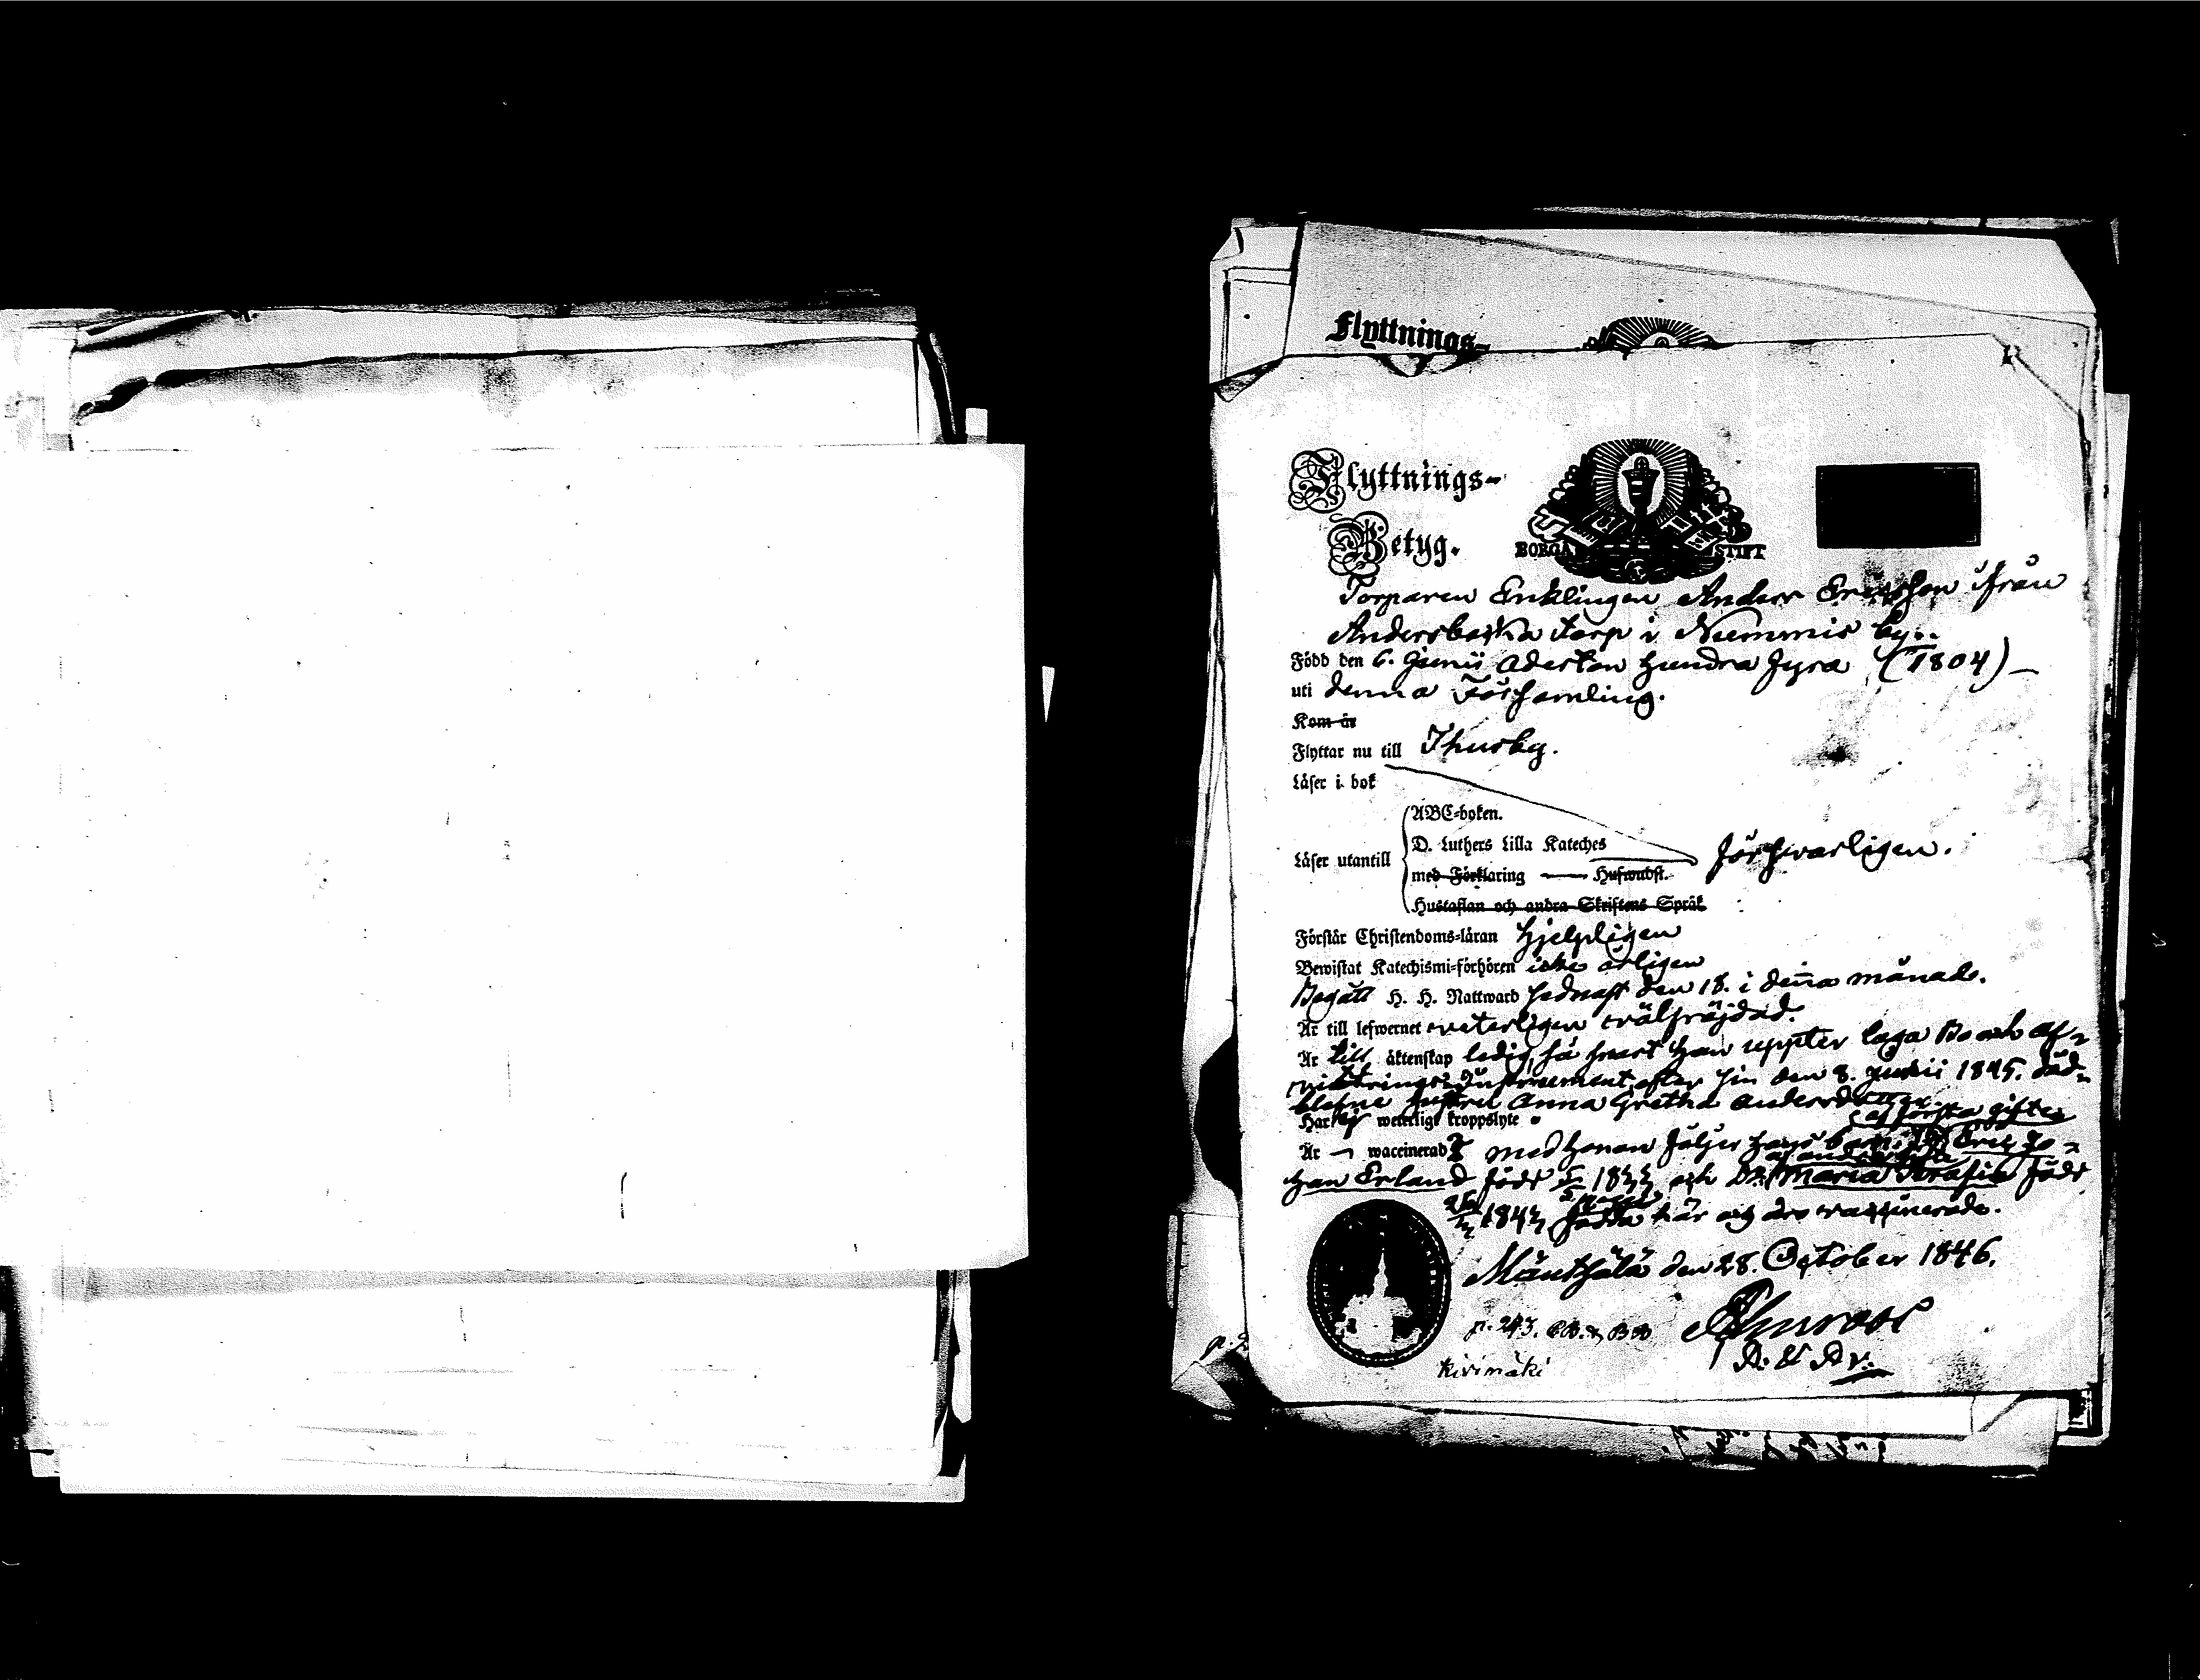 Flyttnings-
Flyttnings-
Betyg.
BORGÅ STIFT
Torparen Enklingen Anders Ericsson ifrån
Andersbacka torp i Nummis by.
Född den 6. Junii Aderton hundra fyra (1804)
uti denna Församling.
Kom år
Flyttar nu till Thusby.
Läser i bok
ABC-boken.
D. Luthers Lilla Kateches
Läser utantill
försvarligen.
med Förklaring Hufwudst.
Hustaflan och andra Skriftens Språk
Förstår Christendoms-läran hjelpligen
Bewistat Katechismi-förhören icke årligen
Begått H. H. Nattward sednast den 18. i denna månad.
Är till lefwernet veterligen välfräjdad.
Är till äktenskap ledig, så snart han uppter laga Bo och af-
vittrings Instrument efter sin den 8. Junii 1845. död-
blefne hustru Anna Gretha Andersdotter
af första giftet
Har ej weterligt kroppslyte
Är waccinerad med honom följer hans barn Eric Jo-
af andra
han Erland född 1833 och Maria Serafia född
1843 födda här och äro vaccinerade.
Mäntsälä den 28. October 1846.
p. 243.
Kivimäki